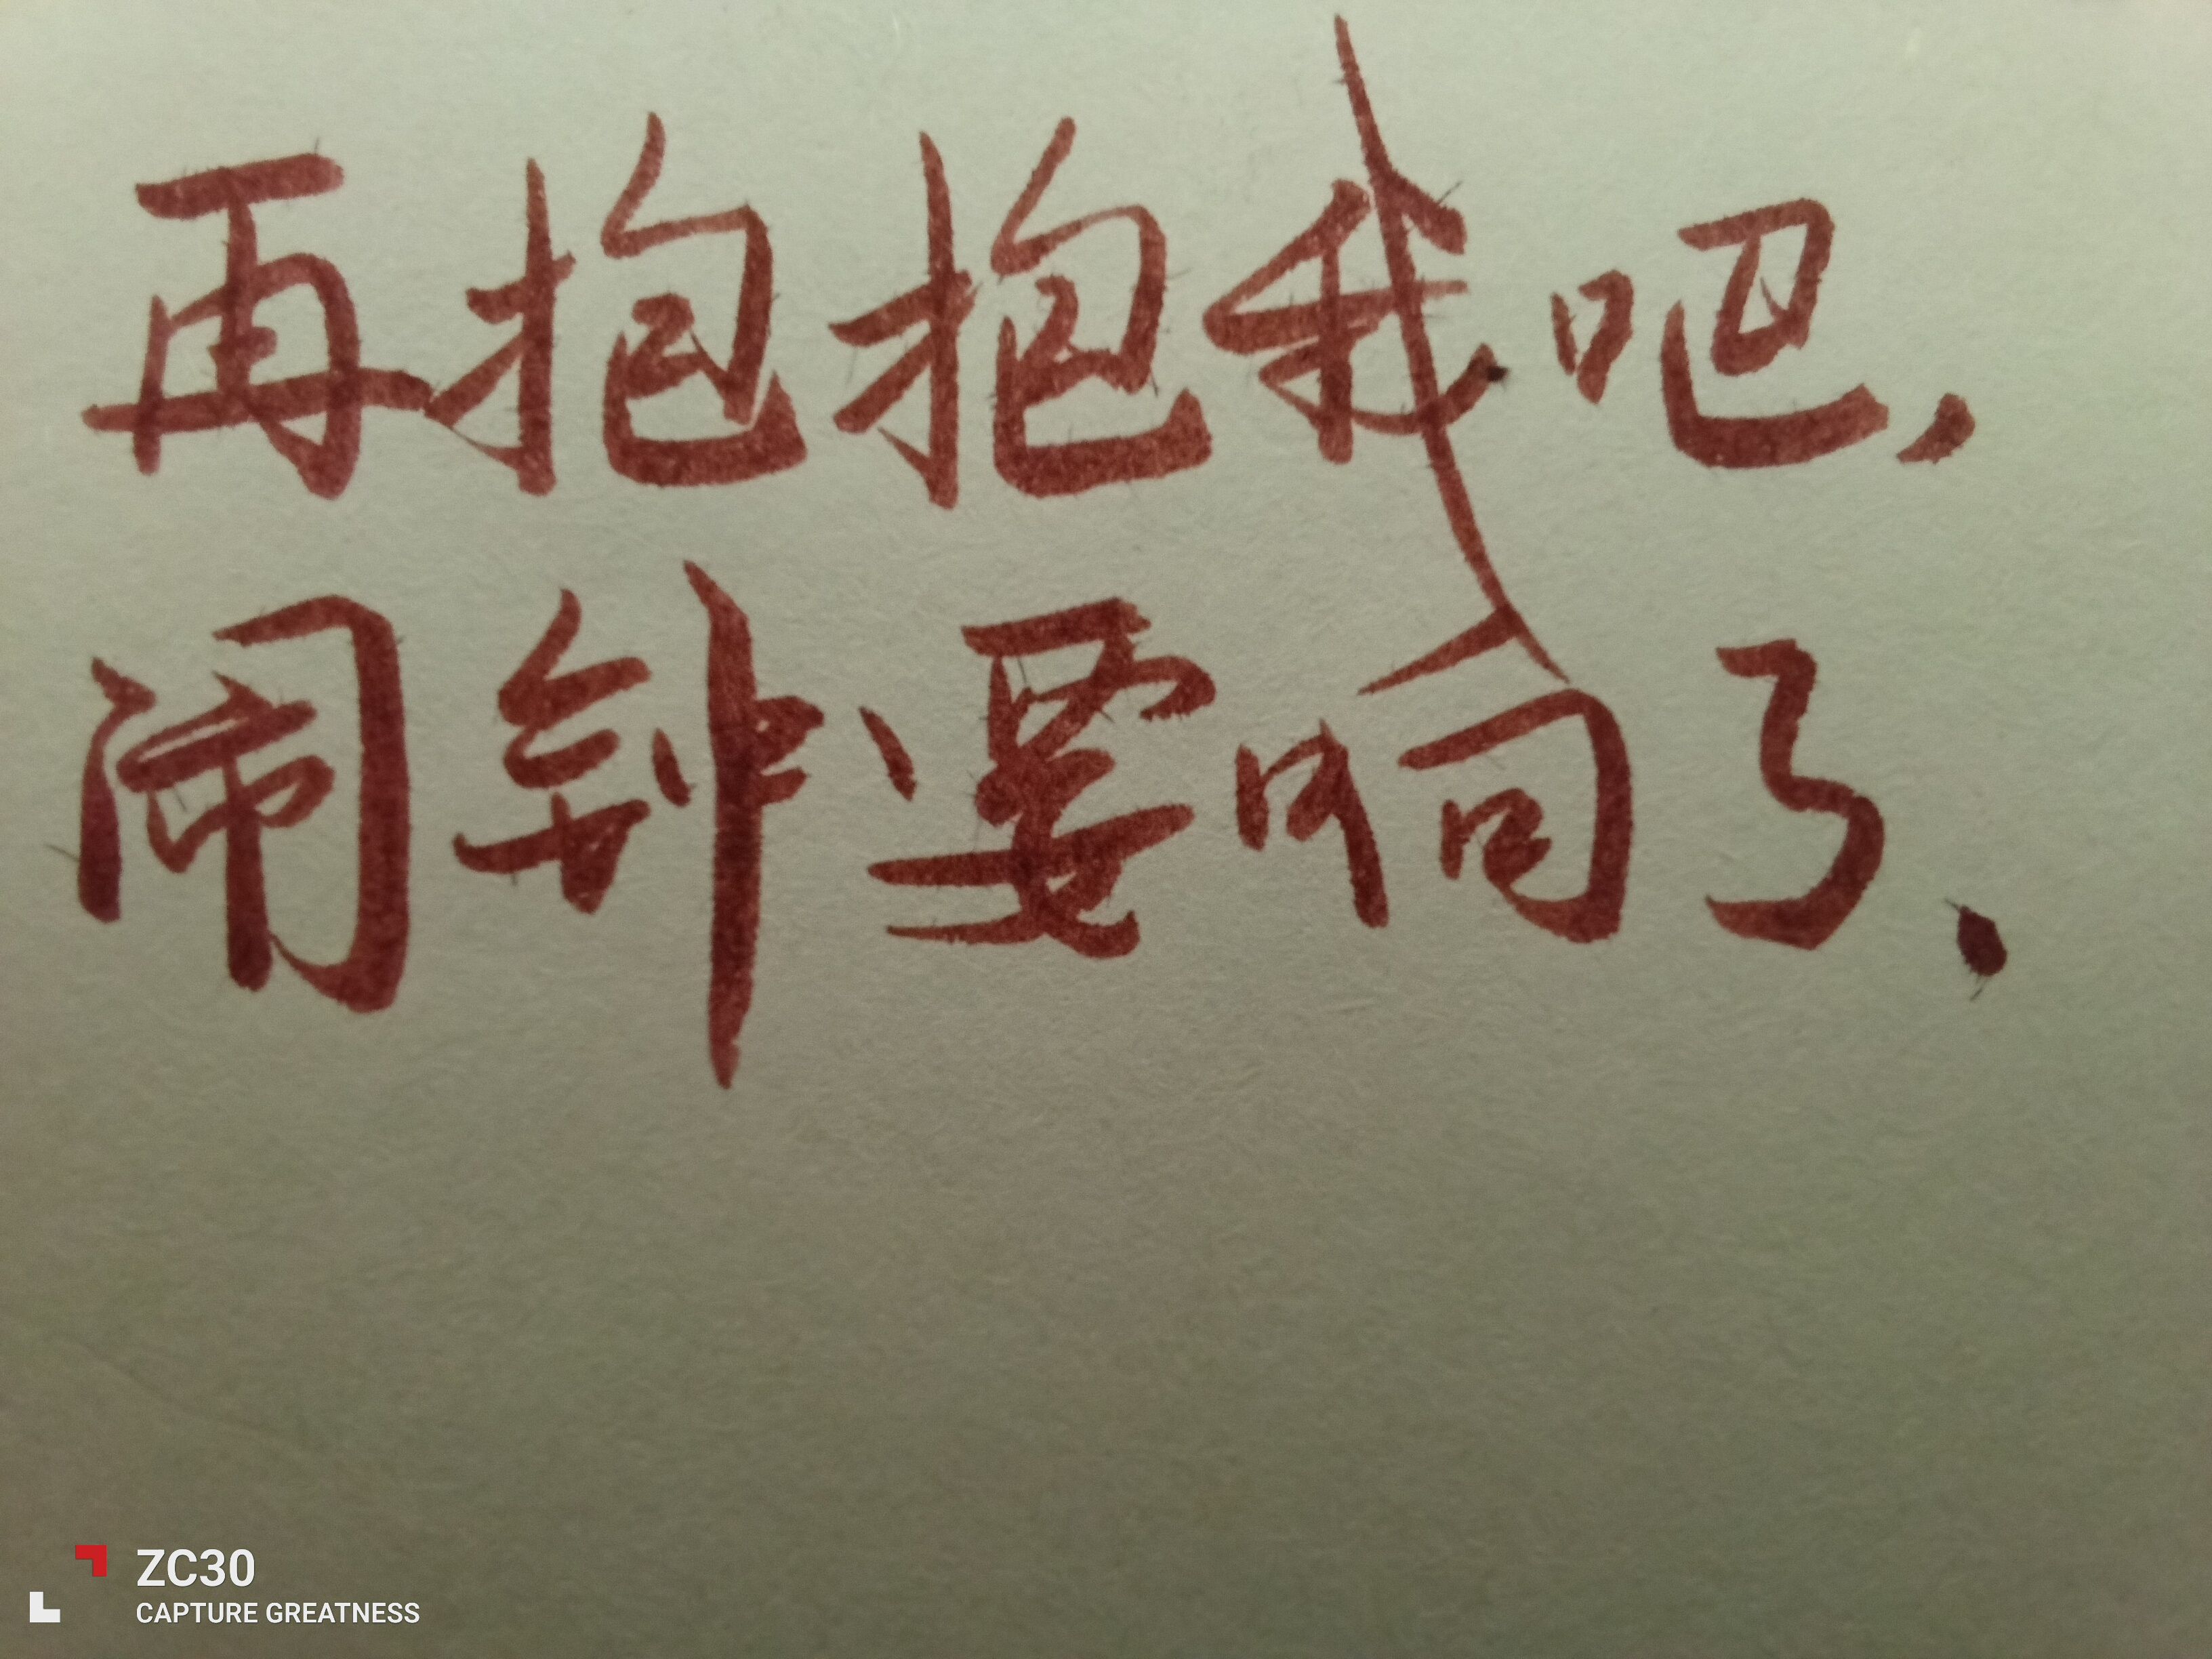 再抱抱我吧，
闹钟要响了.
ZC30
CAPTURE GREATNESS